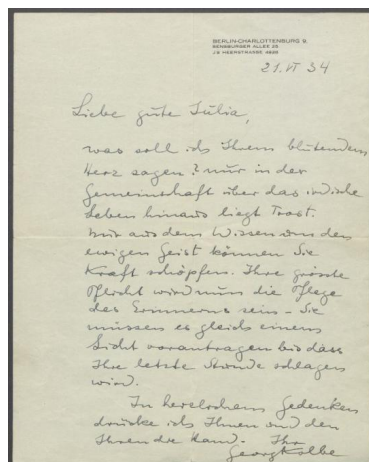 BERLIN-CHARLOTTENBURG 9,
SENSBURGER ALLEE 26
J 9 HEERSTRASSE 4626
21. VI 34
Liebe gute Julia,
was soll ich Ihrem blutenden
Herz sagen? nur in der
Gemeinschaft über das irdische
Leben hinaus liegt Trost.
nur aus dem Wissen von dem
ewigen Geist können Sie
Kraft schöpfen. Ihre grösste
Pflicht wird nun die Pflege
des Erinnerns sein – Sie
müssen es gleich einem
Licht vorantragen bis dass
Ihre letzte Stunde schlagen
wird.
In herzlichem Gedenken
drücke ich Ihnen und den
Ihren die Hand. Ihr
Georg Kolbe